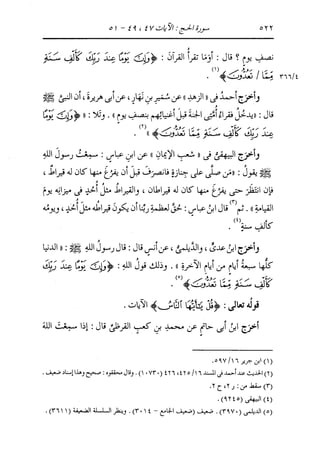 ٥٢٢
سورة الحج: الآيات ٤٧، ٤٩ - ٥١
نصفِ يومٍ؟ قال: أوَمَا تقرأُ القرآنَ: ﴿وَإِنَّ يَوْمًا عِندَ رَبِّكَ كَأَلْفِ سَنَةٍ
٣٦٦/٤
مِّمَّا / تَعُدُّونَ﴾(١).
وأخرج أحمدُ فى «الزهدِ» عن سُميرِ بنِ نَهارٍ، عن أبى هريرةَ، أن النبىَّ ﷺ
قال: «يدخُلُ فقراءُ أُمَّتى الجنةَ قبلَ أغنيائِهم بنصفِ يومٍ». وتلا: «﴿وَإِنَّ يَوْمًا
عِندَ رَبِّكَ كَأَلْفِ سَنَةٍ مِّمَّا تَعُدُّونَ﴾»(٢).
وأخرج البيهقىُّ فى «شعبِ الإيمانِ» عن ابنِ عباسٍ: سمِعْتُ رسولَ اللهِ
ﷺ يقولُ: «مَن صلَّى على جنازةٍ فانصرَف قبلَ أن يفرُغَ منها كان له قيراطٌ،
فإن انتظَر حتى يفرُغَ منها كان له قيراطان، والقيراطُ مثلُ أُحُدٍ فى ميزانِه يومَ
القيامةِ». ثم(٣) قال ابنُ عباسٍ: حُقَّ لعظمةِ ربِّنا أن يكونَ قيراطُه مثلَ أُحُدٍ، ويومُه
كألفِ سنةٍ(٤).
وأخرج ابنُ عدىٍّ، والديلمىُّ، عن أنسٍ قال: قال رسولُ اللهِ ﷺ: «الدنيا
كلُّها سبعةُ أيامٍ من أيامِ الآخرةِ». وذلك قولُ اللهِ: ﴿وَإِنَّ يَوْمًا عِندَ رَبِّكَ
كَأَلْفِ سَنَةٍ مِّمَّا تَعُدُّونَ﴾(٥).
قولُه تعالى: ﴿قُلْ يَٰٓأَيُّهَا ٱلنَّاسُ﴾ الآيات.
أخرج ابنُ أبى حاتمٍ عن محمدِ بنِ كعبٍ القرظىِّ قال: إذا سمِعتَ اللهَ
(١) ابن جرير ١٦/٥٩٧.
(٢) الحديث عند أحمد فى المسند ١٦/٤٢٥، ٤٢٦ (١٠٧٣٠). وقال محققوه: صحيح وهذا إسناد ضعيف.
(٣) سقط من: ر ٢، ح ٢.
(٤) البيهقى (٩٢٤٥).
(٥) الديلمى (٣٩٧٠). ضعيف (ضعيف الجامع - ٣٠١٤). وينظر السلسلة الضعيفة (٣٦١١).